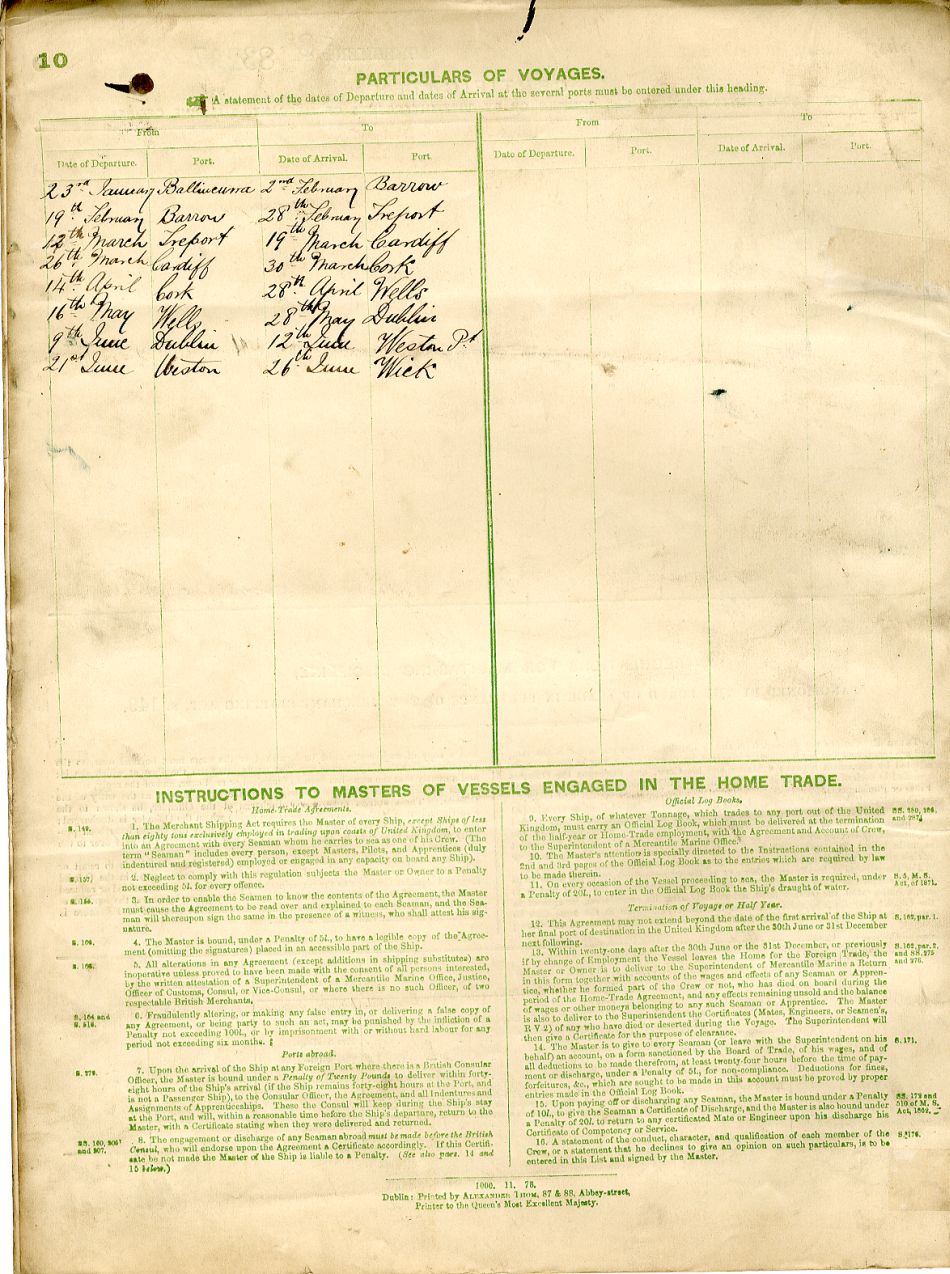 10
PARTICULARS OF VOYAGES.
A statement of the dates of Departure and dates of Arrival at the several ports must be entered under this heading.
From To From To
Date of Departure. Port. Date of Arrival. Port. Date of Departure. Port. Date of Arrival. Port.
23rd January Ballinacurra 2nd February Barrow
19th February Barrow 28th February Treport
12th March Treport 19th March Cardiff
26th March Cardiff 30th March Cork
14th April Cork 28th April Wells
16th May Wells 28th May Dublin
9th June Dublin 12th June Weston Pt
21st June Weston 26th June Wick
INSTRUCTIONS TO MASTERS OF VESSELS ENGAGED IN THE HOME TRADE.
Home-Trade Agreements.
S. 149. 1. The Merchant Shipping Act requires the Master of every Ship, except Ships of less
than eighty tons exclusively employed in trading upon coasts of United Kingdom, to enter
into an Agreement with every Seaman whom he carries to sea as one of his Crew. (The
term "Seaman" includes every person, except Masters, Pilots, and Apprentices (duly
indentured and registered) employed or engaged in any capacity on board any Ship).
S. 157. 2. Neglect to comply with this regulation subjects the Master or Owner to a Penalty
not exceeding 5l. for every offence.
3. In order to enable the Seamen to know the contents of the Agreement, the Master
must cause the Agreement to be read over and explained to each Seaman, and the Sea-
man will thereupon sign the same in the presence of a witness, who shall attest his sig-
nature.
4. The Master is bound, under a Penalty of 5l., to have a legible copy of the Agree-
ment (omitting the signatures) placed in an accessible part of the Ship.
5. All alterations in any Agreement (except additions in shipping substitutes) are
inoperative unless proved to have been made with the consent of all persons interested,
by the written attestation of a Superintendent of a Mercantile Marine Office, Justice,
Officer of Customs, Consul, or Vice-Consul, or where there is no such Officer, of two
respectable British Merchants,
6. Fraudulently altering, or making any false entry in, or delivering a false copy of
any Agreement, or being party to such an act, may be punished by the infliction of a
Penalty not exceeding 100l., or by imprisonment with or without hard labour for any
period not exceeding six months.
Ports abroad.
7. Upon the arrival of the Ship at any Foreign Port where there is a British Consular
Officer, the Master is bound under a Penalty of Twenty Pounds to deliver within forty-
eight hours of the Ship's arrival (if the Ship remains forty-eight hours at the Port, and
is not a Passenger Ship), to the Consular Officer, the Agreement, and all Indentures and
Assignments of Apprenticeships. These the Consul will keep during the Ship's stay
at the Port, and will, within a reasonable time before the Ship's departure, return to the
Master, with a Certificate stating when they were delivered and returned.
8. The engagement or discharge of any Seaman abroad must be made before the British
Consul, who will endorse upon the Agreement a Certificate accordingly. If this Certifi-
cate be not made the Master of the Ship is liable to a Penalty. (See also pars. 14 and
15 below.)
Official Log Books.
9. Every Ship, of whatever Tonnage, which trades to any port out of the United
Kingdom, must carry an Official Log Book, which must be delivered at the termination
of the half-year or Home-Trade employment, with the Agreement and Account of Crew,
to the Superintendent of a Mercantile Marine Office.
10. The Master's attention is specially directed to the Instructions contained in the
2nd and 3rd pages of the Official Log Book as to the entries which are required by law
to be made therein.
11. On every occasion of the Vessel proceeding to sea, the Master is required, under S. 5, M. S.
a Penalty of 20l., to enter in the Official Log Book the Ship's draught of water. Act, of 1871.
Termination of Voyage or Half Year.
12. This Agreement may not extend beyond the date of the first arrival of the Ship at
her final port of destination in the United Kingdom after the 30th June or 31st December
next following.
13. Within twenty-one days after the 30th June or the 31st December, or previously
if by change of Employment the Vessel leaves the Home for the Foreign Trade, the
Master or Owner is to deliver to the Superintendent of Mercantile Marine a Return
in this form together with accounts of the wages and effects of any Seaman or Appren-
tice, whether he formed part of the Crew or not, who has died on board during the
period of the Home-Trade Agreement, and any effects remaining unsold and the balance
of wages or other moneys belonging to any such Seaman or Apprentice. The Master
is also to deliver to the Superintendent the Certificates (Mates, Engineers, or Seamen's,
R V 2) of any who have died or deserted during the Voyage. The Superintendent will
then give a Certificate for the purpose of clearance.
14. The Master is to give to every Seaman (or leave with the Superintendent on his S. 171.
behalf) an account, on a form sanctioned by the Board of Trade, of his wages, and of
all deductions to be made therefrom, at least twenty-four hours before the time of pay-
ment or discharge, under a Penalty of 5l., for non-compliance. Deductions for fines,
forfeitures, &c., which are sought to be made in this account must be proved by proper
entries made in the Official Log Book.
15. Upon paying off or discharging any Seaman, the Master is bound under a Penalty SS. 172 and
of 10l., to give the Seaman a Certificate of Discharge, and the Master is also bound under 510 of M. S.
a Penalty of 20l. to return to any certificated Mate or Engineer upon his discharge his Act, 1862.
Certificate of Competency or Service.
16. A statement of the conduct, character, and qualification of each member of the S. 176.
Crew, or a statement that he declines to give an opinion on such particulars, is to be
entered in this List and signed by the Master.
1000. 11. 78.
Dublin: Printed by ALEXANDER THOM, 87 & 88, Abbey-street,
Printer to the Queen's Most Excellent Majesty.